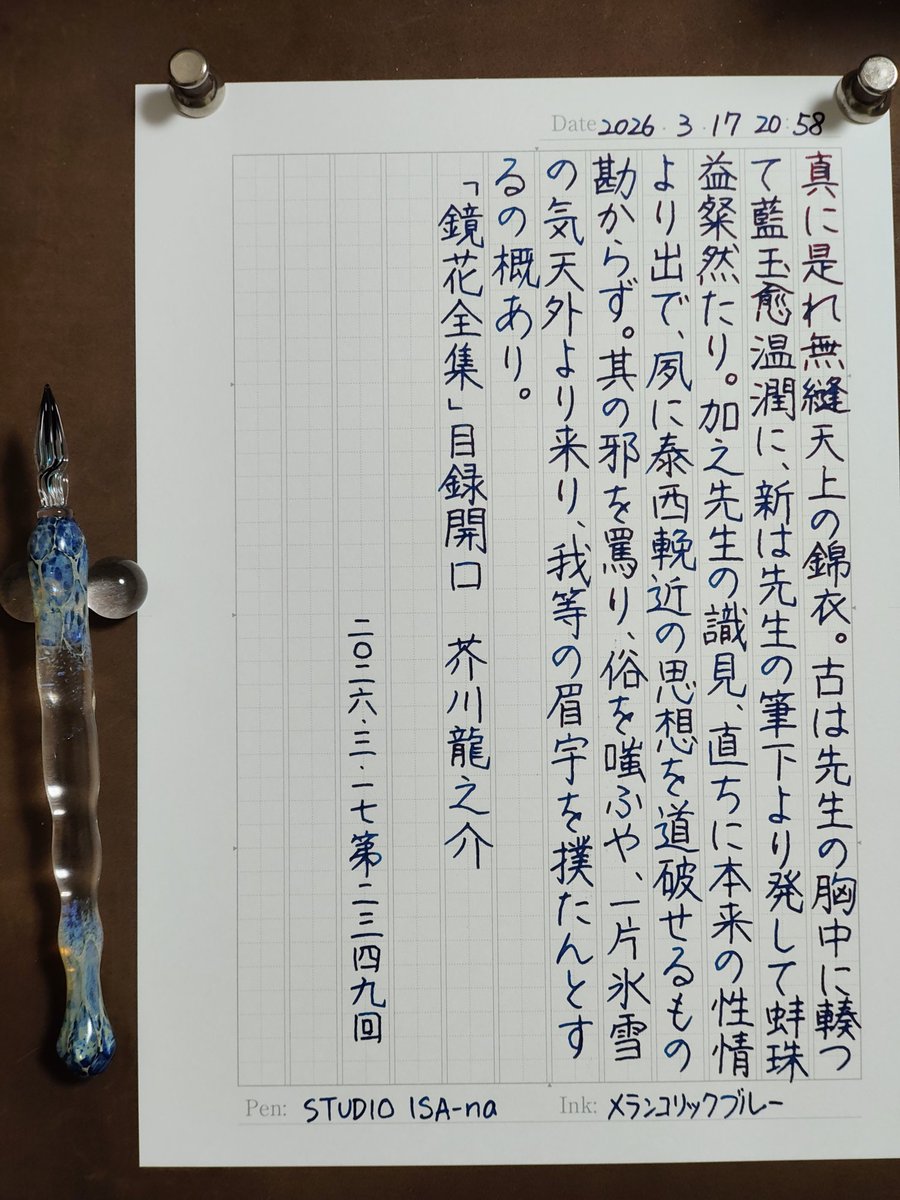 Date 2026.3.17 20:58
真に是れ無縫天上の錦衣。古は先生の胸中に輳つ
て藍玉愈温潤に、新は先生の筆下より発して蚌珠
益粲然たり。加之先生の識見、直ちに本来の性情
より出で、夙に泰西輓近の思想を道破せるもの
勘からず。其の邪を罵り、俗を嗤ふや、一片氷雪
の気天外より来り、我等の眉宇を撲たんとす
るの概あり。
「鏡花全集」目録開口 芥川龍之介
二〇二六・三・一七第二三四九回
Pen: STUDIO ISA-na Ink: メランコリックブルー